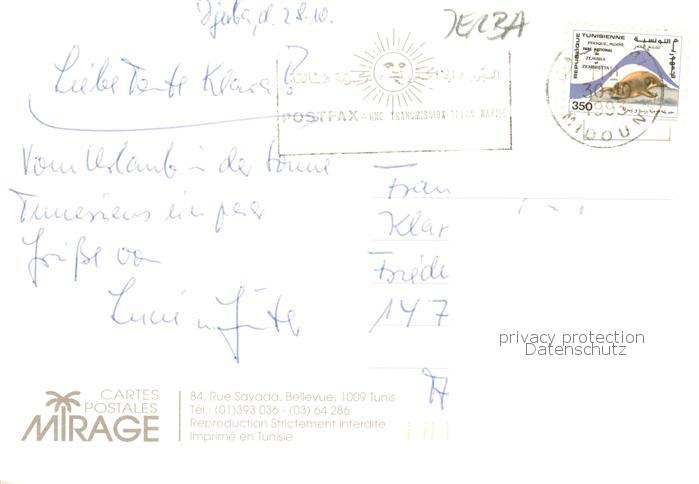 Djerba, d. 28.10.
JERBA
Liebe Tante Klara!
Vom Urlaub in der Sonne
Tunesiens ein paar
Grüße von
Luci u. Günter
POSTFAX - UNE TRANSMISSION ULTRA RAPIDE
REPUBLIQUE TUNISIENNE
PHOQUE MOINE
PARC NATIONAL
DE
ZEMBRA
ET
ZEMBRETTA
350
الجمهورية التونسية
30-10
1993
MIDOUN
Frau
Klar
Friede
147
privacy protection
Datenschutz
CARTES
POSTALES
MIRAGE
84, Rue Sayada, Bellevue, 1009 Tunis
Tél.: (01)393 036 - (03) 64 286
Reproduction Strictement Interdite
Imprimé en Tunisie